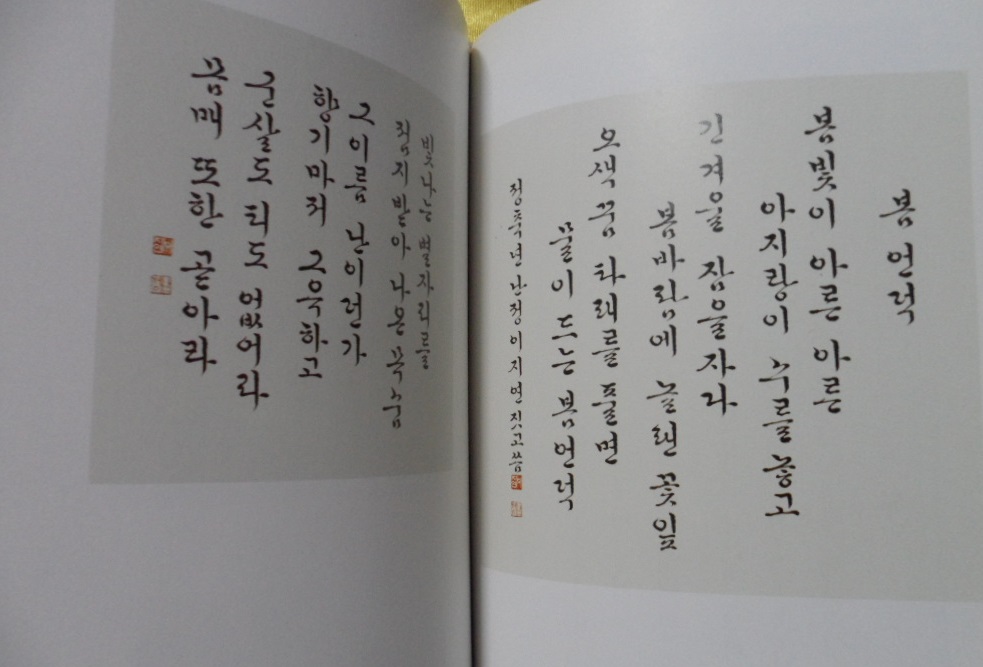 봄 언덕
봄빛이 아른 아른
아지랑이 수를 놓고
긴 겨울 잠을 자다
봄바람에 놀랜 꽃잎
오색꿈 타래를 풀면
물이 드는 봄언덕
정축년 난정 이지연 짓고 씀
빛나는 별자리를
점지받아 나온 목숨
그 이름 난이런가
향기마저 그윽하고
군살도 티도 없어라
몸매 또한 곧아라